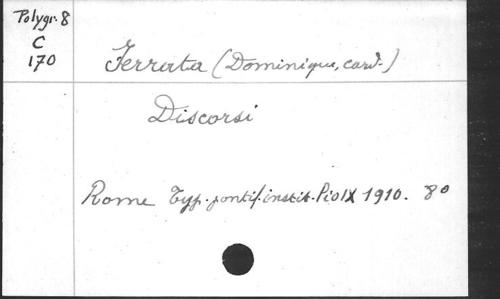 Polygr. 8
C
170
Ferrata (Dominique, card.)
Discorsi
Rome Typ. pontif. instit. Pio IX 1910. 8o